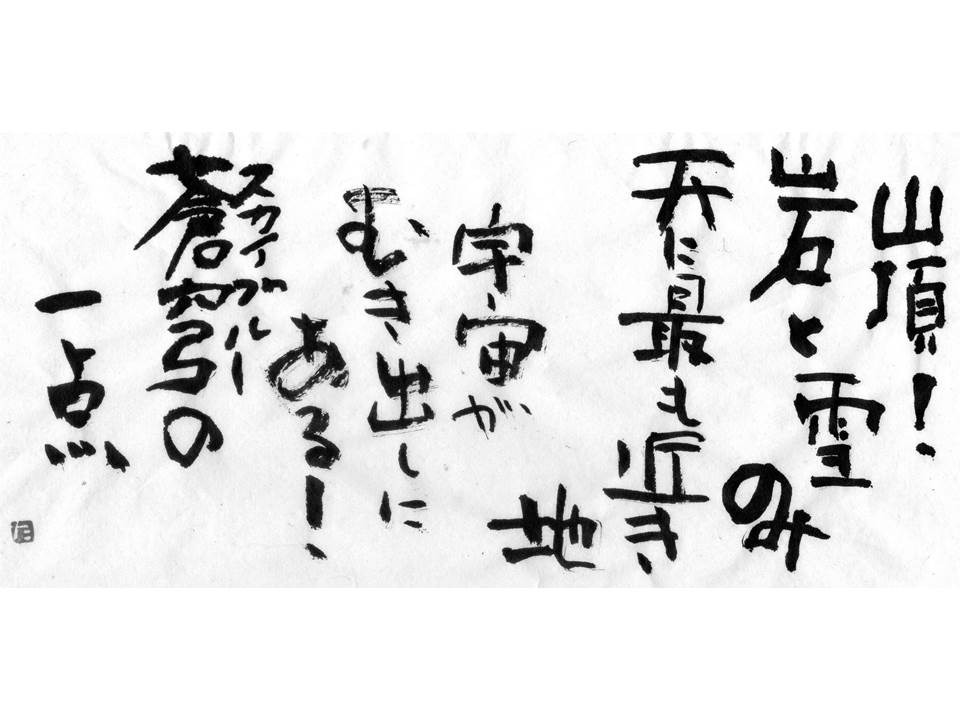 山頂!
岩と雪のみ
天に最も近き
地
宇宙が
むき出しに
ある!
スカイブルー
蒼穹の
一点